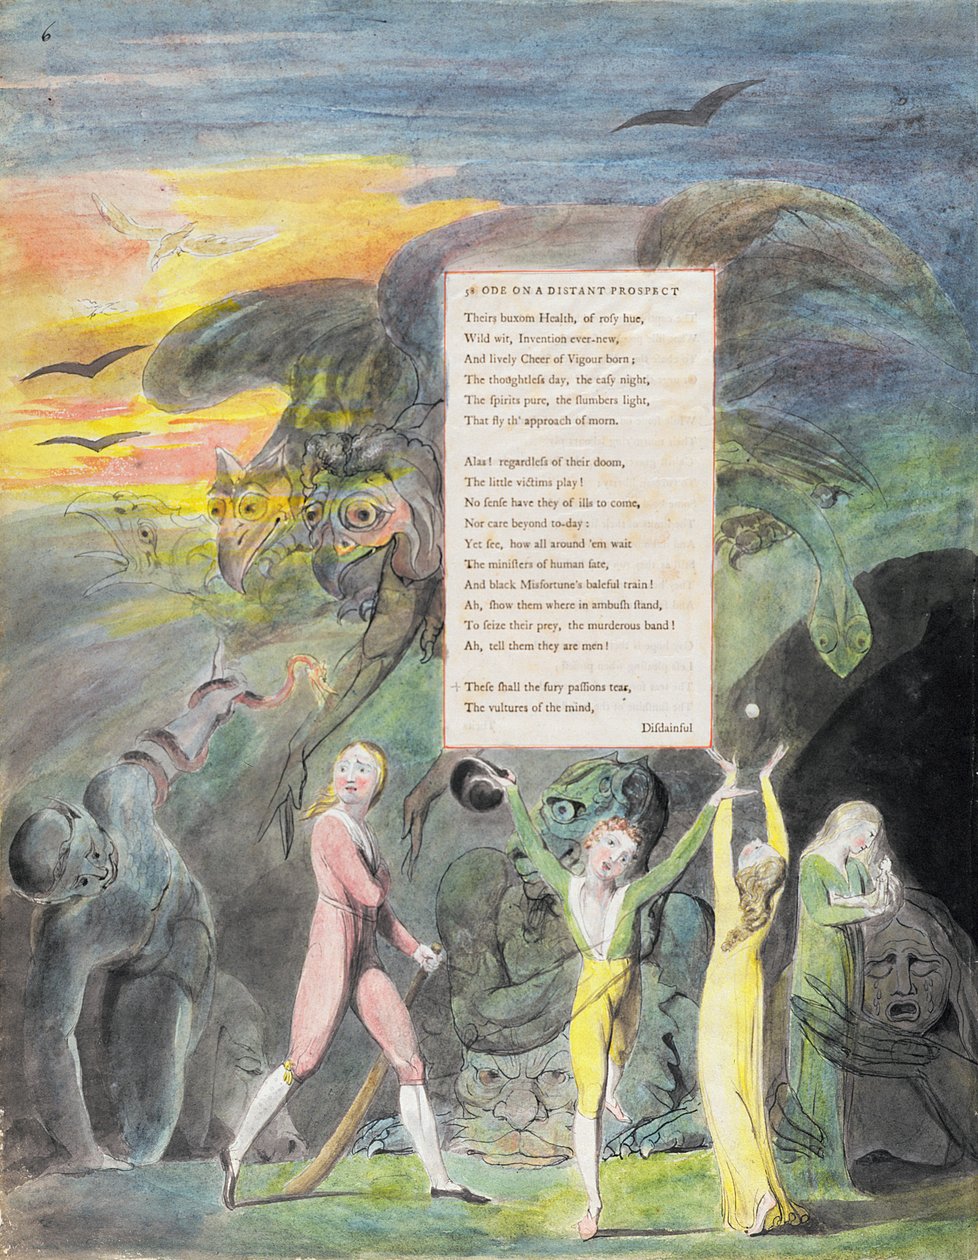 6
58 ODE ON A DISTANT PROSPECT
Theirs buxom Health, of roſy hue,
Wild wit, Invention ever-new,
And lively Cheer of Vigour born;
The thoughtleſs day, the eaſy night,
The ſpirits pure, the ſlumbers light,
That fly th' approach of morn.
Alas! regardleſs of their doom,
The little victims play!
No ſenſe have they of ills to come,
Nor care beyond to-day:
Yet ſee, how all around 'em wait
The miniſters of human fate,
And black Misfortune's baleful train!
Ah, ſhow them where in ambuſh ſtand,
To ſeize their prey, the murderous band!
Ah, tell them they are men!
+ Theſe ſhall the fury paſſions tear,
The vultures of the mind,
Diſdainful